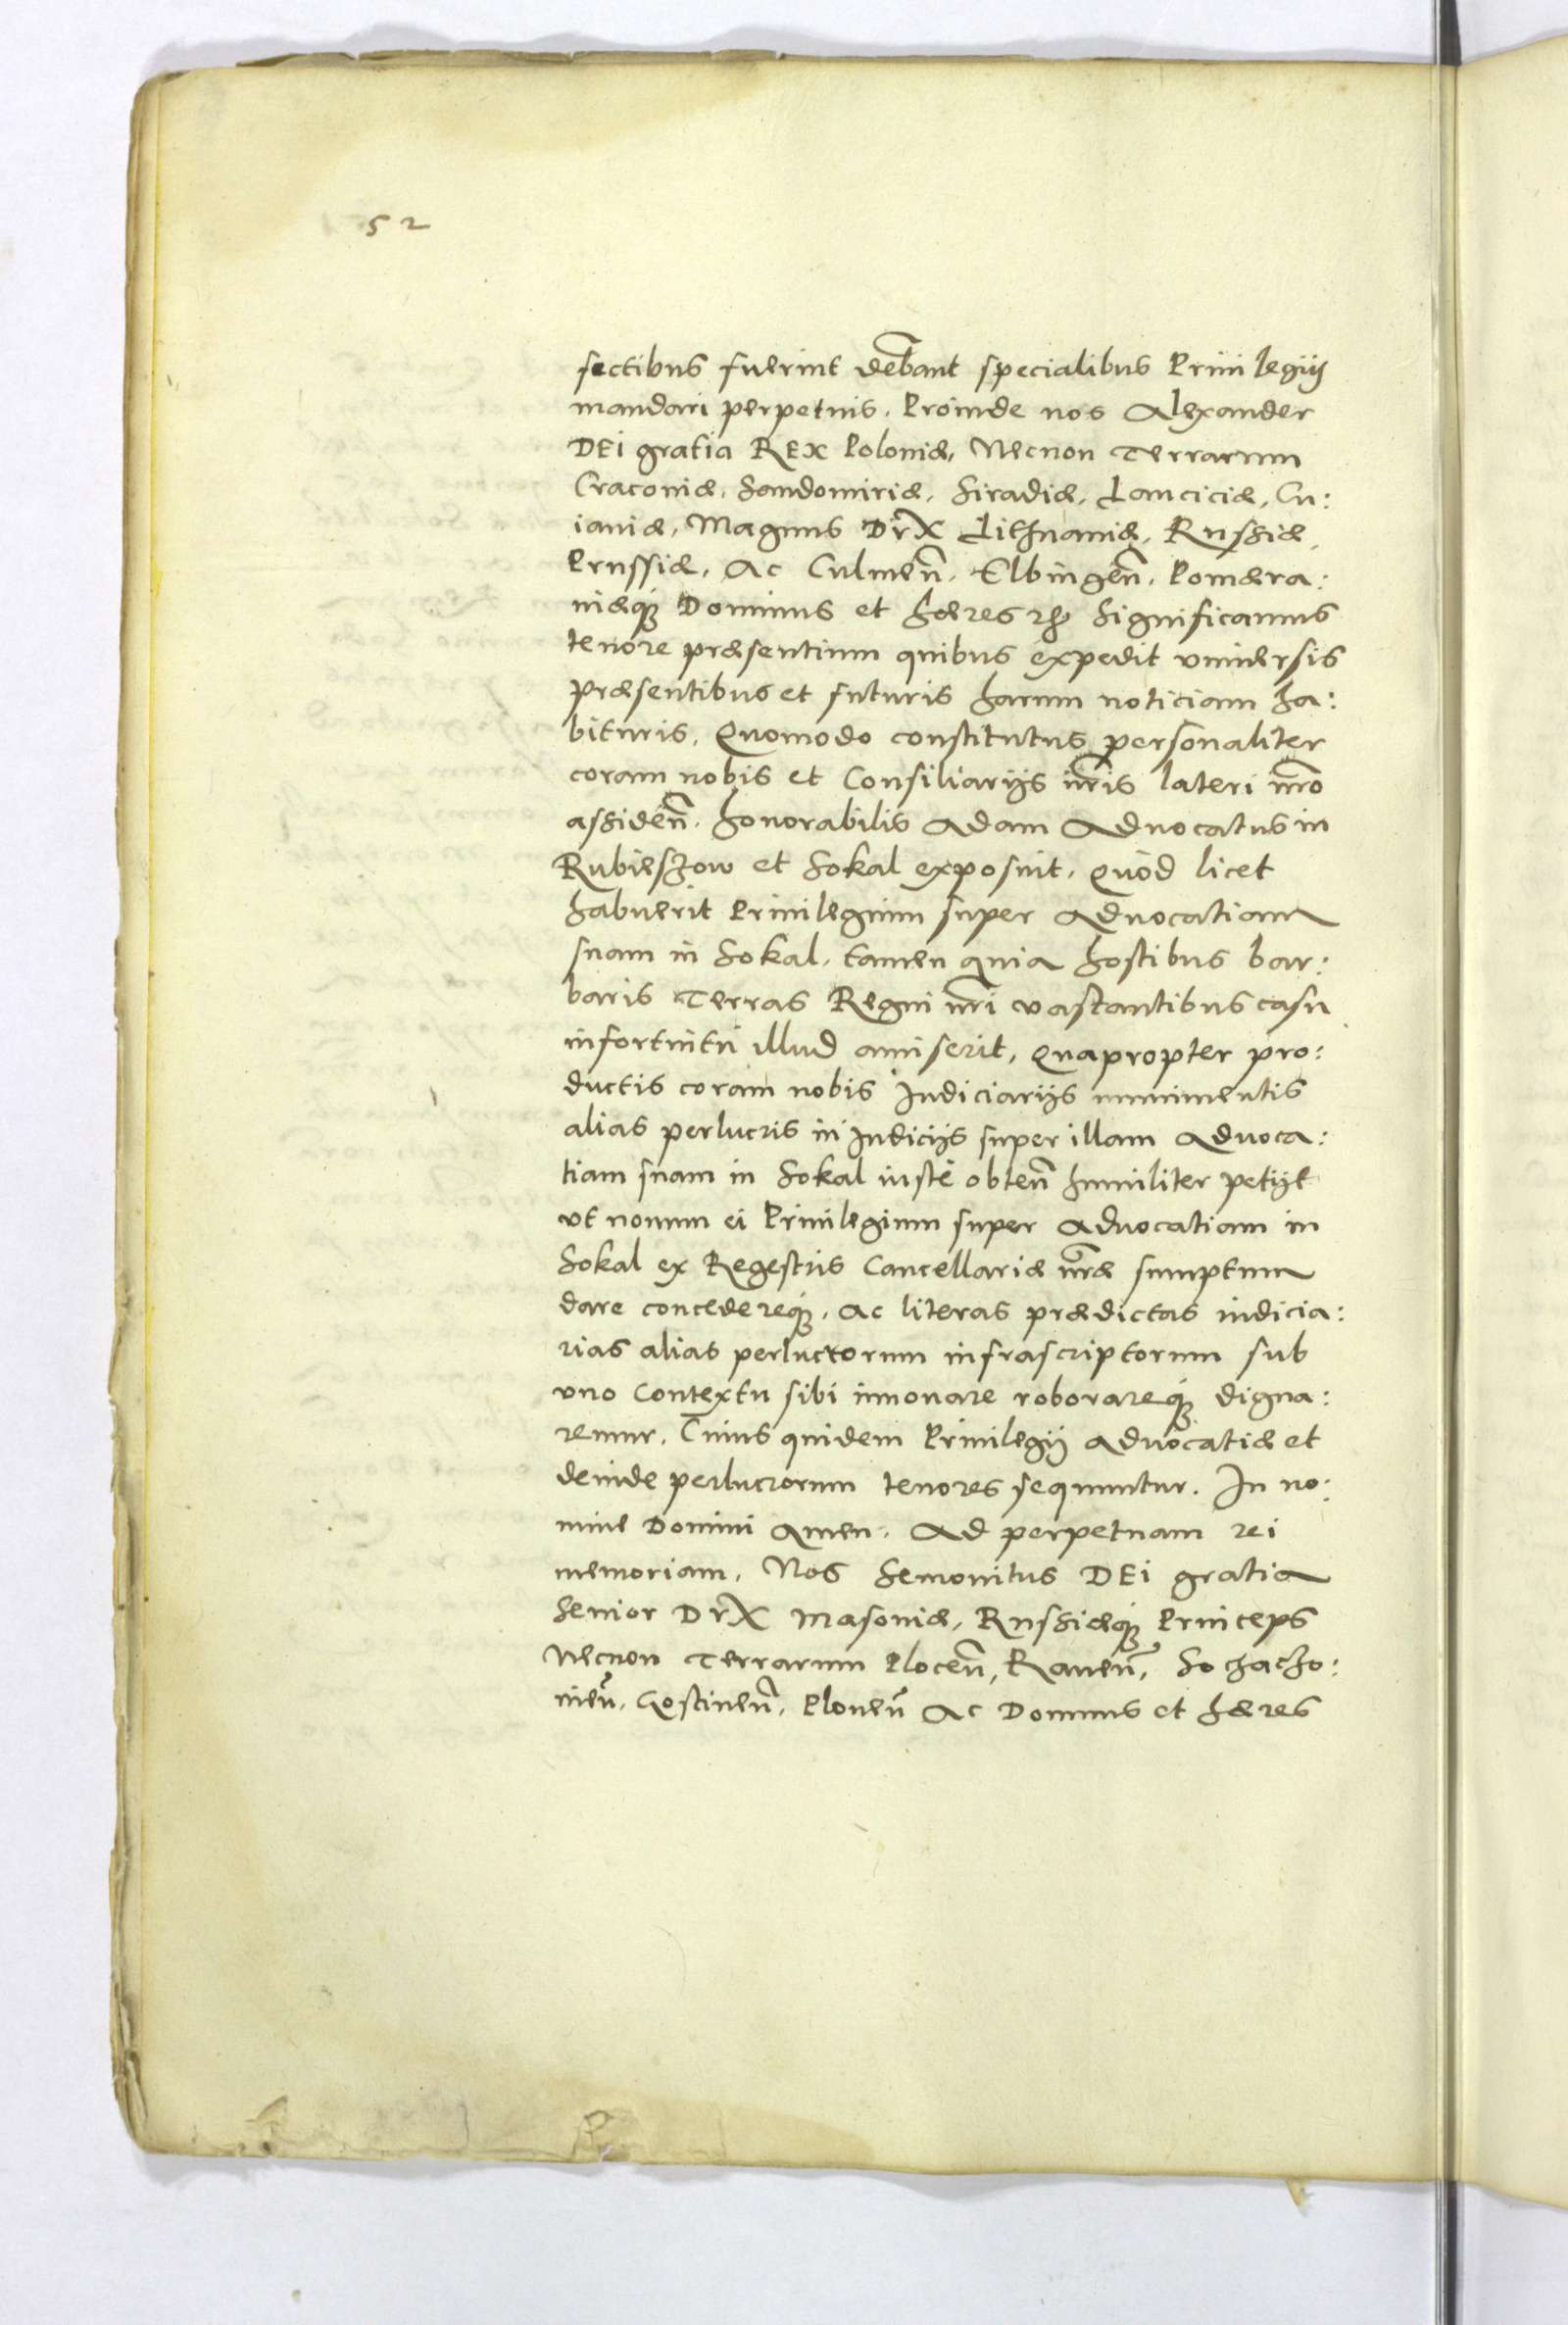 52
sectibus fuerint debant specialibus Priuilegijs
mandari perpetuis. Proinde nos Alexander
DEi gratia REX Poloniæ, Necnon Terrarum
Cracouiæ, Sandomiriæ, Siradiæ, Lanciciæ, Cu:
iauiæ, Magnus DVX Lithuaniæ, Russiæ,
Prussiæ, Ac Culmeñ. Elbingeñ. Pomæra:
niæq́ꝫ Dominus et hæres ꝛc̃ Significamus
tenore præsentium quibus expedit vniuersis
præsentibus et futuris harum noticiam ha:
bituris, Quomodo constitutus personaliter
coram nobis et Consiliarijs nr̃is lateri nr̃o
assideñ. honorabilis Adam Aduocatus in
Rubieszow et Sokal exposuit, Quòd licet
habuerit Priuilegium super Aduocatiam
suam in Sokal, tamen quia hostibus bar:
baris Terras Regni nr̃i vastantibus casu
infortuitu illud amiserit, Quapropter pro:
ductis coram nobis Iudiciarijs munimentis
alias perlucris in Iudicijs super illam Aduoca:
tiam suam in Sokal iustè obteñ humiliter petijt
vt nouum ei Priuilegium super Aduocatiam in
Sokal ex Regestris Cancellariæ nr̃æ sumptum
dare concedereq́ꝫ, Ac literas prædictas iudicia:
rias alias perlucrorum infrascriptorum sub
vno Contextu sibi innouare roborareq́ꝫ digna:
remur, Cuius quidem Priuilegij Aduocatiæ et
deinde perlucrorum tenores sequuntur. In no:
mine Domini Amen. Ad perpetuam rei
memoriam, Nos Semouitus DEi gratia
Senior DVX Masouiæ, Russiæq́ꝫ Princeps
Necnon Terrarum Ploceñ, Raueñ, Sochaczo:
uieñ. Gostineñ, Ploneñ Ac Dominus et hæres